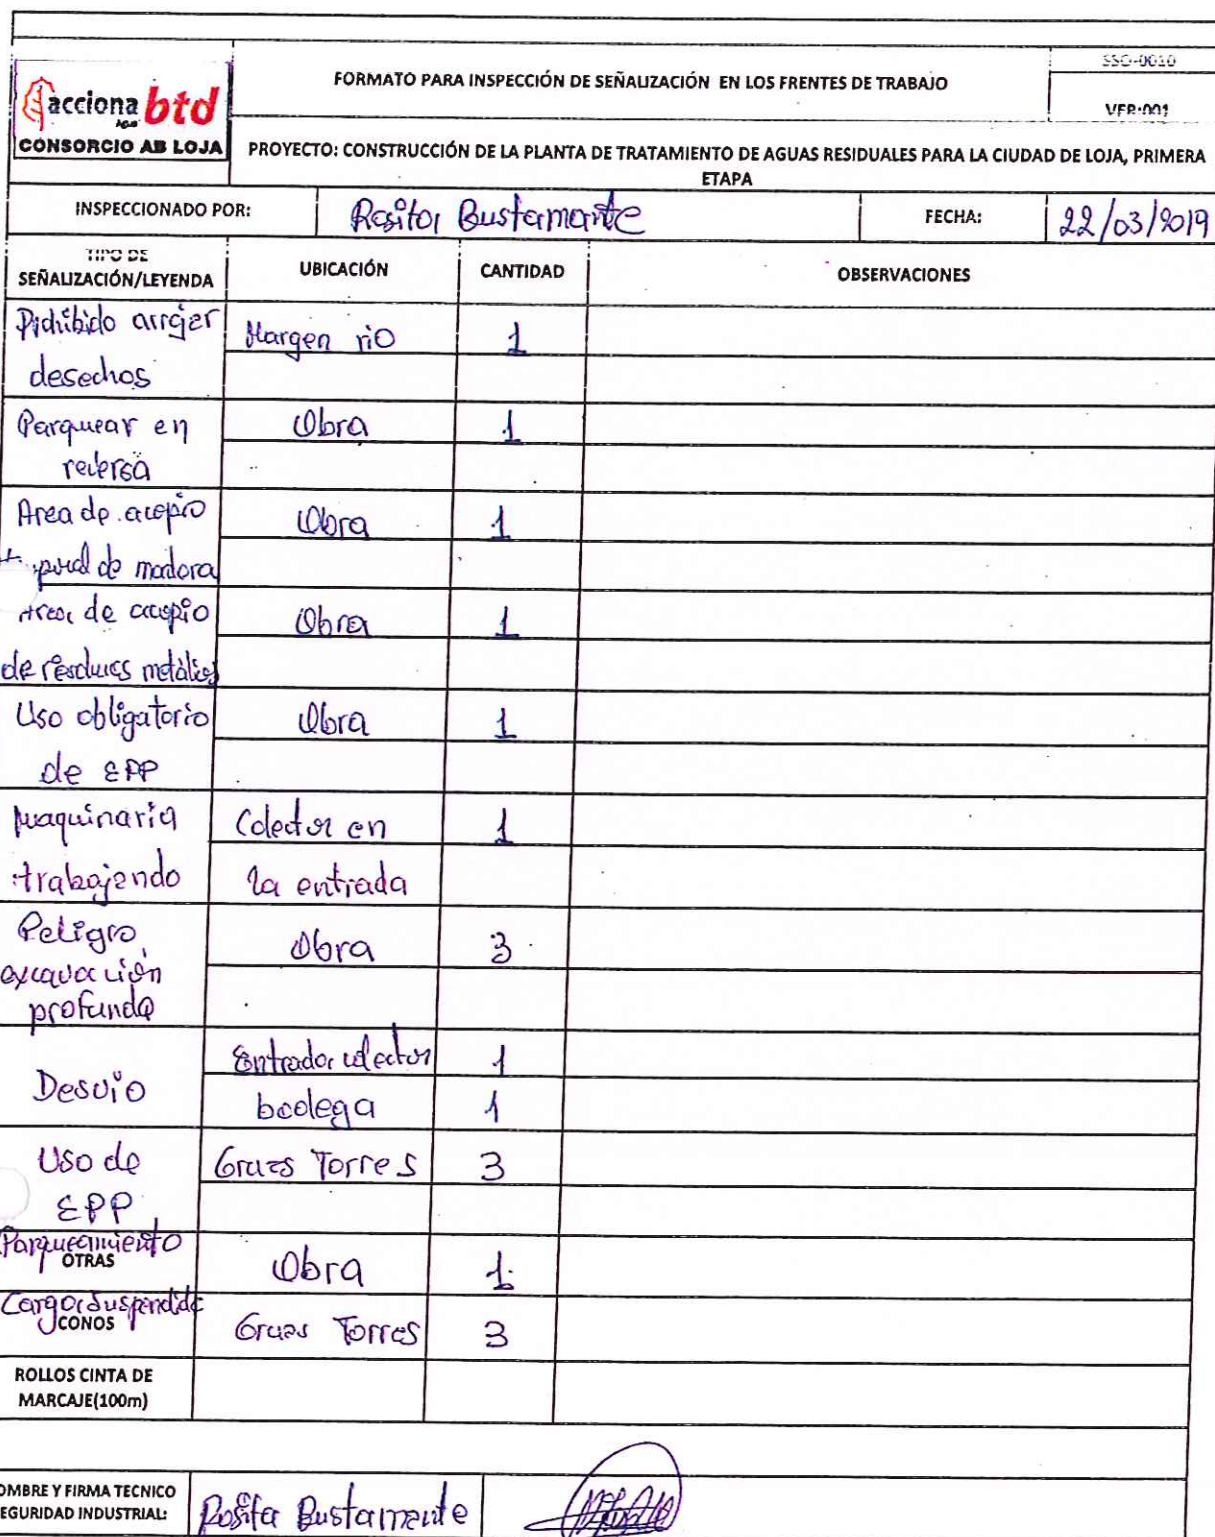 SSO-0010
acciona btd
FORMATO PARA INSPECCIÓN DE SEÑALIZACIÓN EN LOS FRENTES DE TRABAJO
VER:001
CONSORCIO AB LOJA
PROYECTO: CONSTRUCCIÓN DE LA PLANTA DE TRATAMIENTO DE AGUAS RESIDUALES PARA LA CIUDAD DE LOJA, PRIMERA
ETAPA
INSPECCIONADO POR: Rosita Bustamante FECHA: 22/03/2019
TIPO DE
SEÑALIZACIÓN/LEYENDA UBICACIÓN CANTIDAD OBSERVACIONES
Prohibido arrojar Margen río 1
desechos
Parquear en Obra 1
reversa
Area de acopio Obra 1
de madera
Area de acopio Obra 1
de residuos metálicos
Uso obligatorio Obra 1
de EPP
Maquinaria Colector en 1
trabajando la entrada
Peligro Obra 3
excavación
profunda
Desvío Entrada colector 1
bodega 1
Uso de Gruas Torres 3
EPP
Parqueamiento
OTRAS Obra 1
Carga suspendida
CONOS Gruas Torres 3
ROLLOS CINTA DE
MARCAJE(100m)
OMBRE Y FIRMA TECNICO
EGURIDAD INDUSTRIAL: Rosita Bustamante